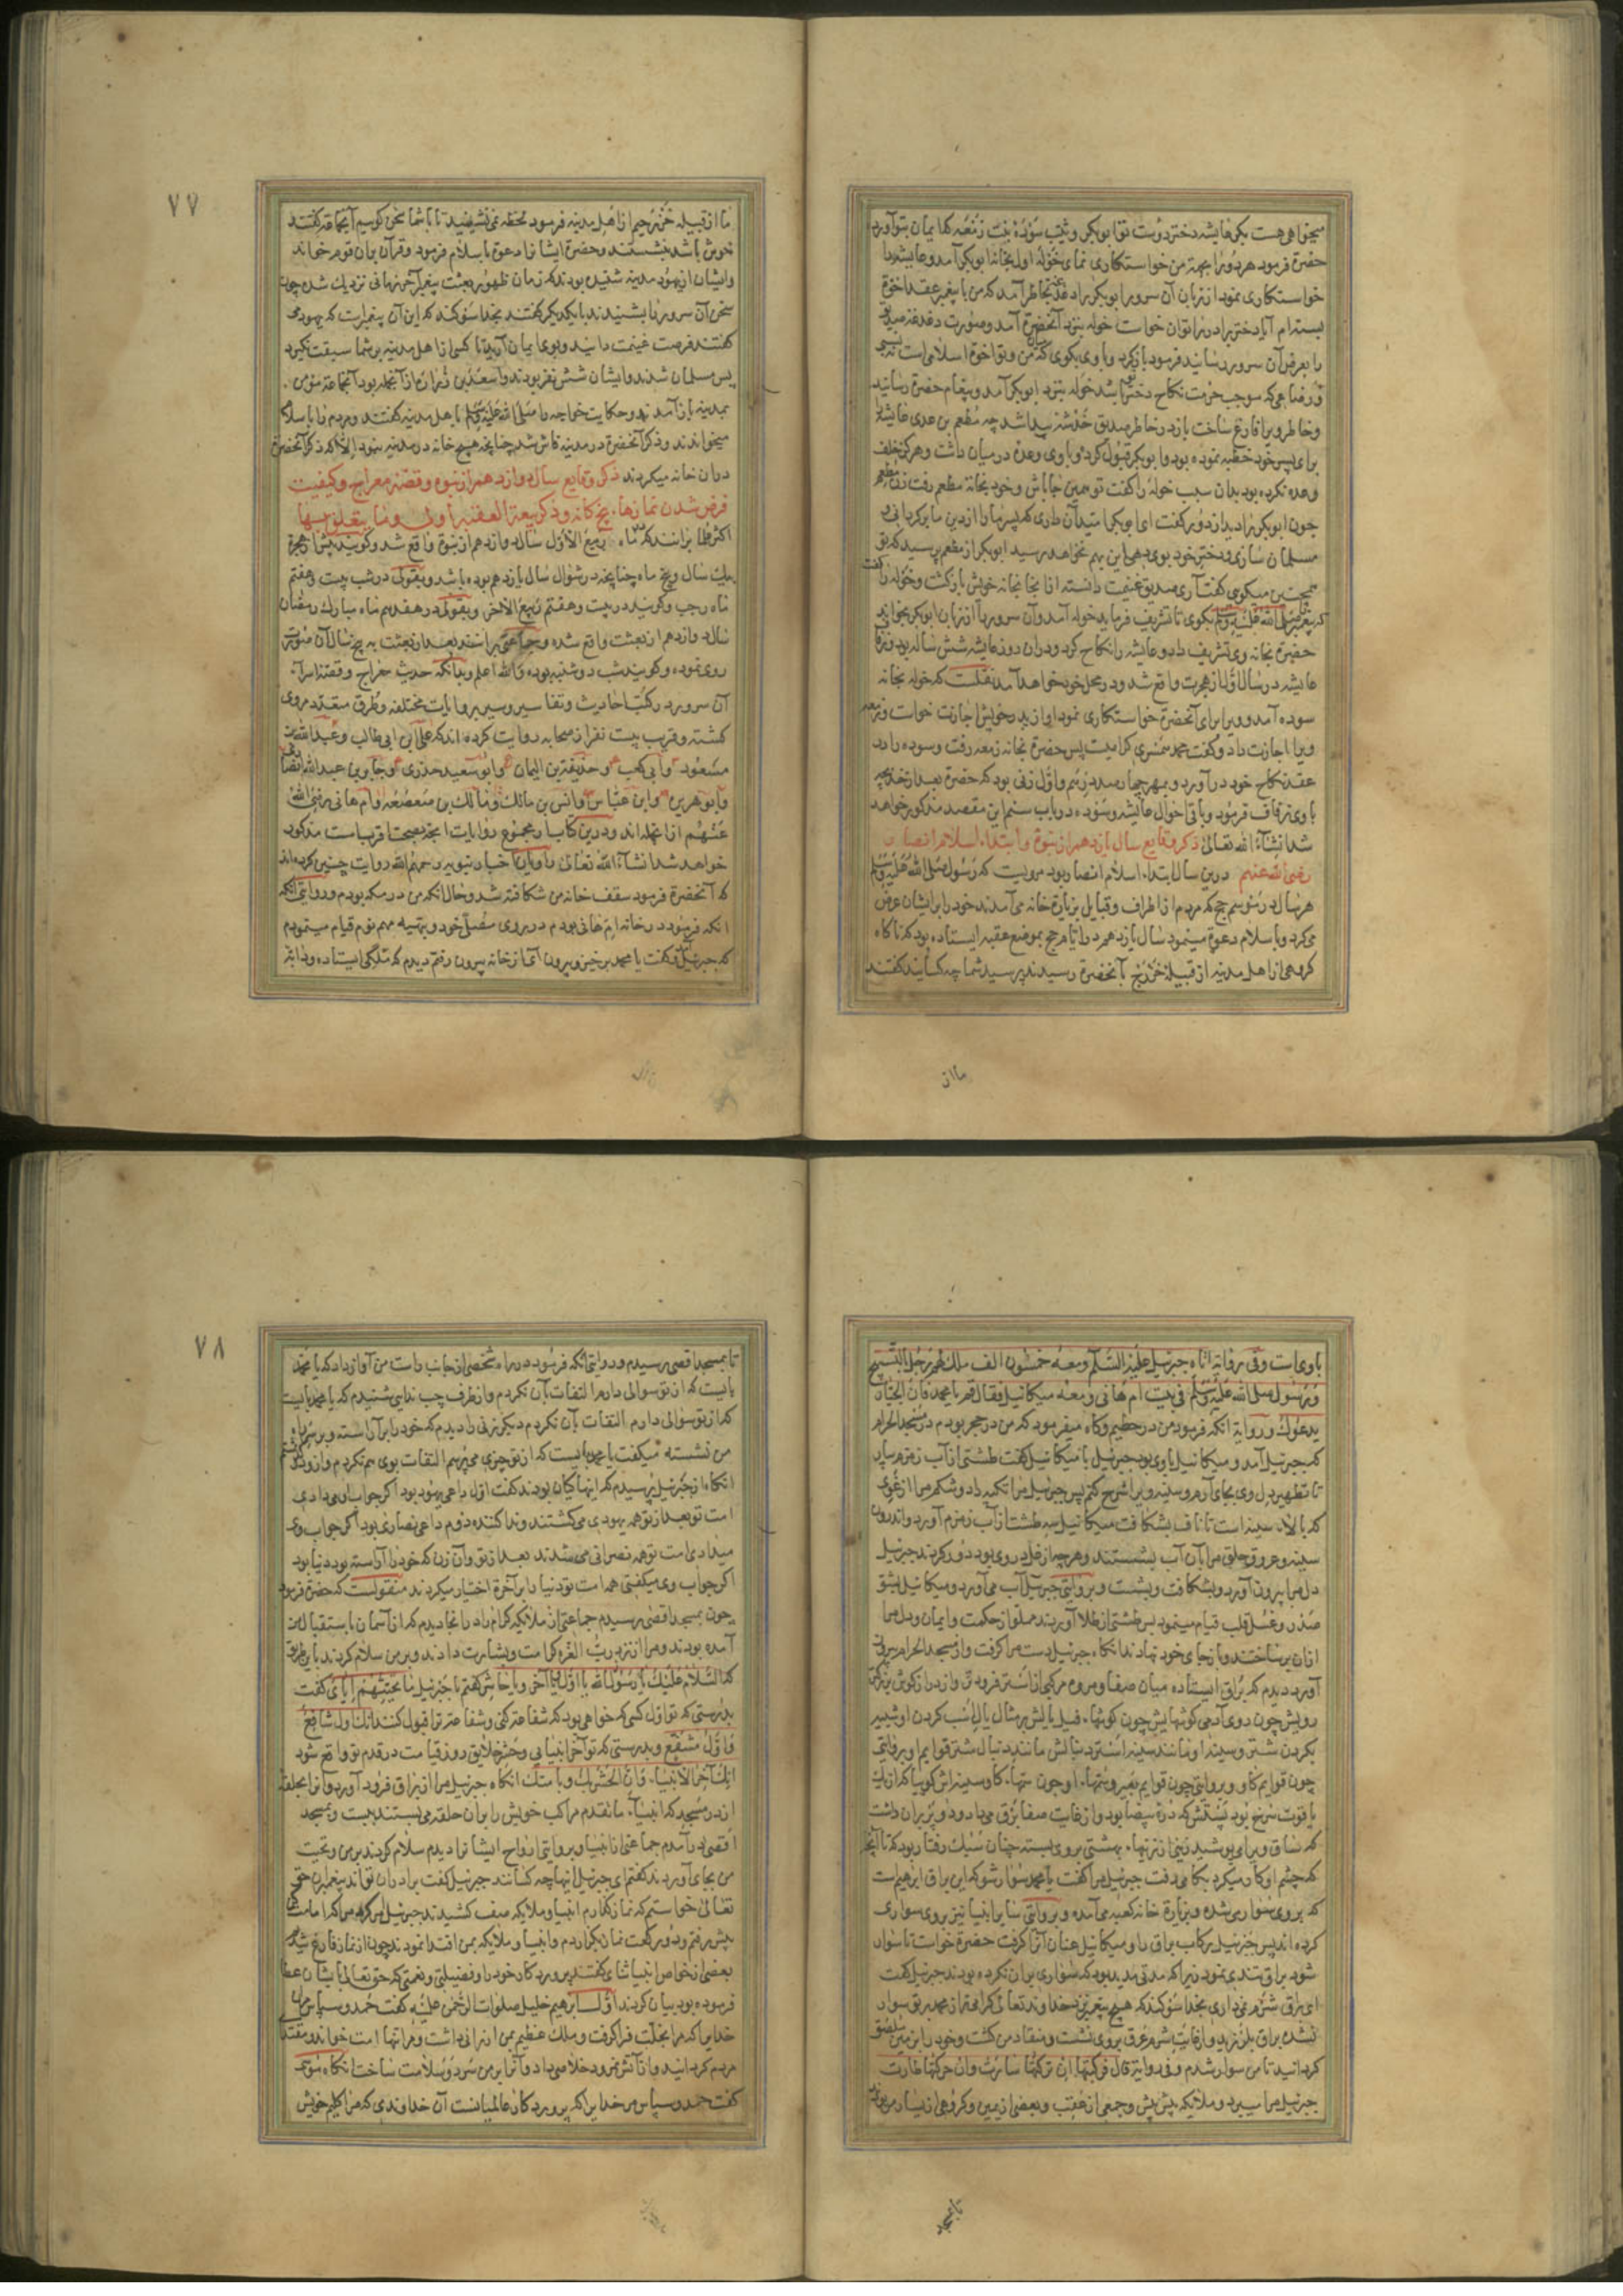 میخواهی هست بکر عایشه دختر دوست تو ابوبکر و ثیب سوده بنت زمعه که ایمان بتو آورده
حضرة فرمود هر دو را بجهة من خواستکاری نمای خوله اول بخانه ابوبکر آمد و عایشه را
خواستکاری نمود از زبان آن سرور ابوبکر را دغدغه بخاطر آمد که من با پیغمبر عقد اخوة
بسته‌ام آیا دختر برادر را توان خواست خوله بنزد آنحضرة آمد و صورت دغدغه صدیق
را بعرض آن سرور رسانید فرمود باز کرد و با وی بکوی که من و تو اخوة اسلامی است نه نسبی
و رضاعی که موجب حرمت نکاح دختر باشد خوله بنزد ابوبکر آمد و پیغام حضرة رسانید
و خاطر ویرا فارغ ساخت باز در خاطر صدیق خدشه پیدا شد چه مطعم بن عدی عایشه را
برای پسر خود خطبه نموده بود و ابوبکر قبول کرده و با وی وعده در میان داشت و هرکز خلف
وعده نکرده بود بدان سبب خوله را کفت تو همین جا باش و خود بخانه مطعم رفت زن مطعم
چون ابوبکر را دید از دور کفت ای ابوبکر امید آن داری که پسر ما را از دین ما برکردانی و
مسلمان سازی و دختر خود بوی دهی این بهم نخواهد رسید ابوبکر از مطعم پرسید که تو
همچنین میکوی کفت آری صدیق غنیمت دانسته از آنجا بخانه خویش بازکشت و خوله را کفت
که پیغمبر صلی الله علیه وسلم بکوی تا تشریف فرماید خوله آمد و آن سرور را از زبان ابوبکر بخواند
حضرة بخانه وی تشریف داد و عایشه را نکاح کرد و در آن روز عایشه شش ساله بود و زفاف
عایشه در سال اول از هجرت واقع شد و در محل خود خواهد آمد نقلست که خوله بخانه
سوده آمد و ویرا برای آنحضرة خواستکاری نمود او از پدر خویش اجازت خواست و زمعه
ویرا اجازت داد و کفت محمد همسری کرامیست پس حضرة بخانه زمعه رفت و سوده را در
عقد نکاح خود در آورد و بمهر چهارصد درم و اول زنی بود که حضرة بعد از خدیجه
با وی زفاف فرمود و باقی احوال عایشه و سوده در باب سیم این مقصد مذکور خواهد
شد انشاء الله تعالی ذکر وقایع سال یازدهم از نبوة و ابتداء اسلام انصار
رضی الله عنهم درین سال ابتداء اسلام انصار بود مرویست که رسول صلی الله علیه وسلم
هر سال در موسم حج که مردم از اطراف و قبایل بزیارة خانه می‌آمدند خود را بر ایشان عرض
می‌کرد و با سلام دعوة مینمود سال یازدهم در ایام حج بموضع عقبه ایستاده بود که ناکاه
کروهی از اهل مدینه از قبیله خزرج بآنحضرة رسیدند پرسید شما چه کسانید کفتند
ما از
۷۷
ما از قبیله خزرجیم از اهل مدینه فرمود لحظه نمی‌نشینید تا با شما سخن کویم آنجماعه کفتند
خوش باشد بنشستند و حضرة ایشانرا دعوة باسلام فرمود و قرآن بران قوم خواند
و ایشان از یهود مدینه شنیده بودند که زمان ظهور بعثت پیغمبر آخر زمانی نزدیک شده چون
سخن آن سرور را بشنیدند با یکدیکر کفتند بخدا سوکند که این آن پیغمبرست که یهود می
کفتند فرصت غنیمت دانید و بوی ایمان آرید تا کسی از اهل مدینه بر شما سبقت نکیرد
پس مسلمان شدند و ایشان شش نفر بودند و اسعد بن زراره از آنجمله بود آنجماعه مؤمن
بمدینه باز آمدند و حکایت خواجه را صلی الله علیه وسلم با اهل مدینه کفتند و مردم را باسلام
میخواندند و ذکر آنحضرة در مدینه فاش شد چنانچه هیچ خانه در مدینه نبود الا که ذکر آنحضرة
در آن خانه میکردند ذکر وقایع سال دوازدهم از نبوة و قصه معراج و کیفیت
فرض شدن نمازهاء پنج کانه و ذکر بیعة العقبه اولی و ما یتعلق بهما
اکثر علما برانند که در ماه ربیع الاول سال دوازدهم از نبوة واقع شد و کویند پیش از هجرة
بیک سال و پنج ماه چنانچه در شوال سال یازدهم بوده باشد و بقولی در شب بیست و هفتم
ماه رجب و کویند در بیست و هفتم ربیع الآخر و بقولی در هفدهم ماه مبارک رمضان
سال دوازدهم از بعثت واقع شده و جماعتی برآنند بعد از بعثت به پنج سال آن صورت
روی نموده و کویند شب دوشنبه بوده والله اعلم و بدانکه حدیث معراج و قصه اسراء
آن سرور در کتب احادیث و تفاسیر و سیر بروایات مختلفه و طرق متعدده مروی
کشته و قریب بیست نفر از صحابه روایت کرده‌اند که علی ابن ابی طالب و عبدالله بن
مسعود و ابی کعب و حذیفة بن الیمان و ابو سعید خدری و جابر بن عبدالله انصاری
و ابو هریره و ابن عباس و انس بن مالک و مالک بن صعصعه و ام هانی رضی الله
عنهم از آنجمله اند و درین کتاب از مجموع روایات آنچه بصحت اقربست مذکور
خواهد شد انشاء الله تعالی راویان اخبار نبویه رحمهم الله روایت چنین کرده‌اند
که آنحضرة فرمود سقف خانه من شکافته شد و حال آنکه من در مکه بودم و روایتی آنکه
آنکه فرمود در خانه ام هانی بودم در روی مصلی خود و بتهیه مهم نوم قیام مینمودم
که جبرئیل آمد و کفت یا محمد برخیز و بیرون آی از خانه بیرون رفتم دیدم که ملکی ایستاده و دابه
با وی است وفی روایة اتاه جبرئیل علیه السلام ومعه خمسون الف ملک لهم زجل بالتسبیح
ورسول صلی الله علیه وسلم فی بیت ام هانی ومعه میکائیل فقال قم یا محمد فان الجبار
یدعوک و روایة آنکه فرمود من در حطیم و کاه میفرمود که من در حجر بودم در مسجد الحرام
که جبرئیل آمد و میکائیل با وی بود جبرئیل با میکائیل کفت طشتی از آب زمزم بیار
تا تطهیر دل وی بجای آرم و سینه ویرا شرح کنم پس جبرئیل مرا تکیه داد و شکم مرا از نحری
که بالاء سینه است تا ناف بشکافت میکائیل سه طشت از آب زمزم آورد و اندرون
سینه و عروق حلق مرا بآن آب بشستند و هر چه از غل در وی بود دور کردند جبرئیل
دل مرا بیرون آورد و بشکافت و بشست و بروایتی جبرئیل آب می‌آورد و میکائیل بشق
صدر و غسل قلب قیام مینمود پس طشتی از طلا آوردند مملو از حکمت و ایمان و دل مرا
از آن پر ساختند و باز جای خود نهادند آنکاه جبرئیل دست مرا کرفت و از مسجد الحرام بیرون
آورد دیدم که براق ایستاده میان صفا و مروه مرکبی از استر فرو تر و از دراز کوش بزرکتر
رویش چون روی آدمی کوشهایش چون کوشهاء فیل یالش بر مثال یال اسب کردن او شبیه
بکردن شتر و سینه او مانند سینه استر دنبالش مانند دنبال شتر قوایم او بروایتی
چون قوایم کاو و بروایتی چون قوایم بعیر و سمهاء او چون سمهاء کاو سینه‌اش کویا که از یک
یاقوت سرخ بود پشتش که دره بیضا بود و از غایت صفا برق می‌داد دو پر بران داشت
که ساق ویرا می‌پوشید زینی از زینهاء بهشتی بر وی بسته چنان سبک رفتار بود که تا آنجا
که چشم او کار میکرد یکام میرفت جبرئیل مرا کفت یا محمد سوار شو که این براق ابراهیم است
که بر وی سوار می‌شده و بزیارة خانه کعبه می‌آمده و بروایتی سایر انبیا نیز بر وی سواری
کرده‌اند پس جبرئیل رکاب براق را و میکائیل عنان آنرا کرفت حضرة خواست تا سوار
شود براق تندی نمود زیرا که مدتی مدید بود که سواری بران نکرده بودند جبرئیل کفت
ای براق شرم نمی‌داری بخدا سوکند که هیچ پیغمبر نزد خداوند تعالی کرامی‌تر از محمد بر تو سوار
نشده براق بلرزید و از غایت شرم عرق بر وی نشست و منقاد من کشت و خود را بزمین ملصق
کردانید تا من سوار شدم وفی روایة قال فرکبتها ان ترکتها سارت وان حرکتها طارت
جبرئیل مرا میبرد و ملائکه پیش پیش و جمعی از عقب و بعضی از یمین و کروهی از یسار من بودند
تا بمسجد
۷۸
تا بمسجد اقصی رسیدم و روایتی آنکه فرمود در راه شخصی از جانب راست من آواز داد که یا محمد
بایست که از تو سوالی دارم التفات بآن نکردم و از طرف چپ ندایی شنیدم که یا محمد بایست
که از تو سوالی دارم التفات بآن نکردم دیکر زنی را دیدم که خود را برآراسته و بر سر راه
من نشسته میکفت یا محمد بایست که از تو چیزی می‌پرسم التفات بوی هم نکردم و ازو کذشتم
آنکاه از جبرئیل پرسیدم که اینها کیان بودند کفت اول داعی یهود بود اکر جواب او می‌دادی
امت تو بعد از تو همه یهودی می‌کشتند و ندا کننده دوم داعی نصاری بود اکر جواب وی
میدادی امت تو همه نصرانی می‌شدند بعد از تو و آن زن که خود را آراسته بود دنیا بود
اکر جواب وی میکفتی همه امت تو دنیا را بر آخرة اختیار میکردند منقولست که حضرة فرمود
چون بمسجد اقصی رسیدم جماعتی از ملائکه کرام را در آنجا دیدم که از آسمان باستقبال من
آمده بودند و مرا از نزد رب العزه کرامت و بشارت دادند و بر من سلام کردند باین طریق
که السلام علیک یا رسول الله یا اول یا آخر و یا حاشر کفتم یا جبرئیل ما تحیتهم ایای کفت
بدرستی که تو اول کسی که خواهی بود که شفاعة کنی و شفاعة ترا قبول کنند انک اول شافع
و اول مشفع و بدرستی که تو آخر انبیایی و حشر خلایق روز قیامت در قدم تو واقع شود
انک آخر الانبیاء وان الحشر بک وبامتک آنکاه جبرئیل مرا از براق فرود آورد و آنرا بحلقه
از در مسجد که انبیاء ما تقدم مراکب خویش را بران حلقه می‌بستند ببست و بمسجد
اقصی درآمدم جماعتی از انبیا و بروایتی ارواح ایشانرا دیدم سلام کردند بر من و تحیت
من بجای آوردند کفتم ای جبرئیل اینها چه کسانند جبرئیل کفت برادران تواند پیغمبران حق
تعالی خواستم که نماز بکزارم انبیا و ملایکه صف کشیدند جبرئیل امر کرد مرا که امامت
پیش رفتم و دو رکعت نماز بکزاردم و انبیا و ملایکه بمن اقتدا نمودند چون از نماز فارغ شدیم
بعضی از خواص انبیا ثنای کفتند پروردکار خود را و فضیلتی و نعمتی که حق تعالی بایشان عطا
فرموده بود بیان کردند اول ابرهیم خلیل صلوات الرحمن علیه کفت حمد و سپاس مر
خدایرا که مرا بخلت فرا کرفت و ملک عظیم بمن ارزانی داشت و مرا تنها امت خواند و مقتداء
مردم کردانید و از آتش نمرود خلاصی داد و آنرا بر من سرد و سلامت ساخت آنکاه موسی
کفت حمد و سپاس مر خدایرا که پروردکار عالمیانست آن خداوندی که مرا کلیم خویش